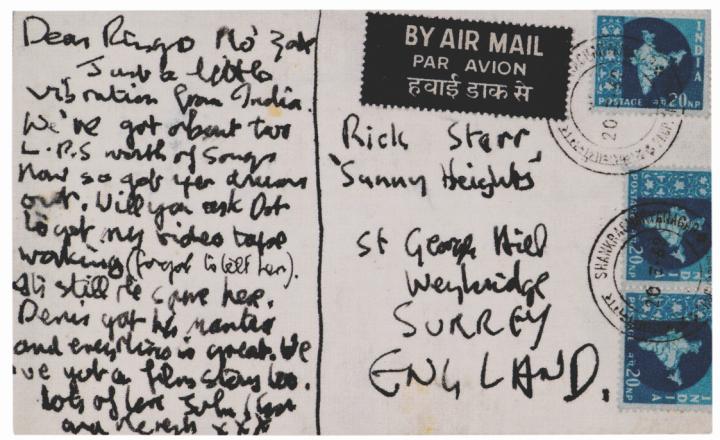 Dear Ringo Mo' Zak
Just a little
vibration from India.
We've got about two
L.P.S worth of songs
now so get your drums
out. Will you ask Dot
to get my video tape
working (forgot to tell her).
It's still the same here.
Denis got his mantra
and everything is great. We
've got a film story too.
lots of love John
and xxx
BY AIR MAIL
PAR AVION
हवाई डाक से
Rick Starr
'Sunny Heights'
St George Hill
Weybridge
SURREY
ENGLAND.
INDIA
POSTAGE 20 NP
20 NP
INDIA
20 NP
INDIA